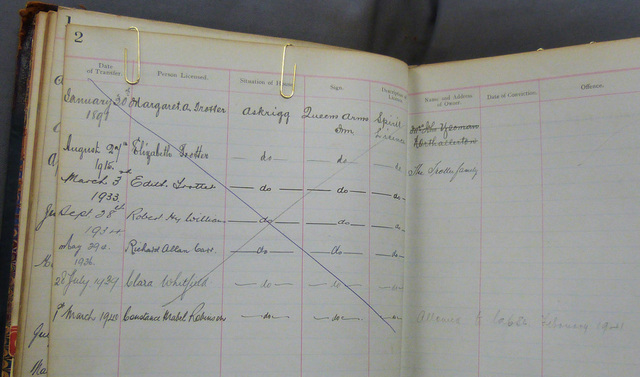 2
Date of Transfer. Person Licensed. Situation of House. Sign. Description of Licence. Name and Address of Owner. Date of Conviction. Offence.
January 30th 1897 Margaret A. Trotter Askrigg Queens Arms Inn Spirit Licence
August 27th 1915. Elizabeth Trotter — do — — do — — do — The Trotter family
March 3rd 1933. Edith Trotter — do — — do — — do —
Sept 28th Robert Hy William — do — — do — — do —
May 29th 1936. Richard Allan — do — — do — — do —
28 July 1939 Clara Whitfield — do — — do — — do —
1st March 1940 Constance Mabel Robinson — do — — do — — do — February 1941